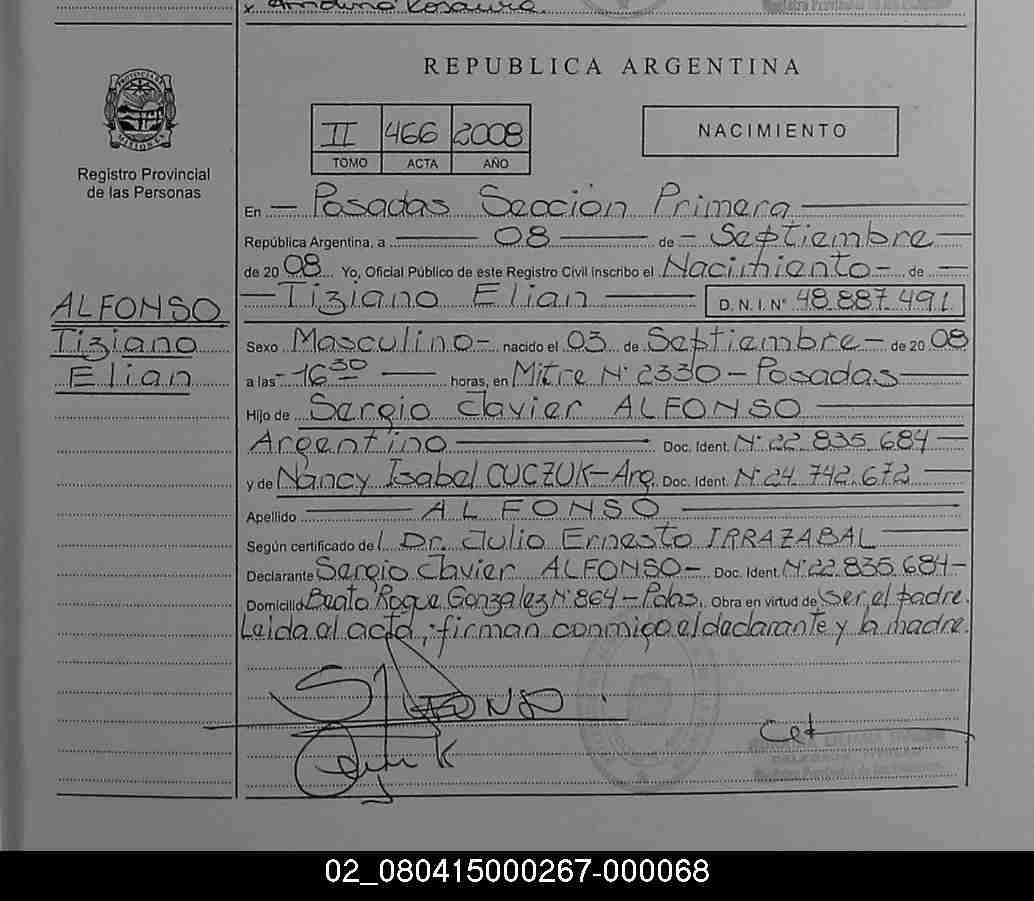 x Rosaura.
REPUBLICA ARGENTINA
PROVINCIA DE
MISIONES
Registro Provincial
de las Personas
II 466 2008
TOMO ACTA AÑO
NACIMIENTO
En — Posadas Sección Primera
República Argentina, a — 08 — de — Septiembre —
de 2008 Yo, Oficial Público de este Registro Civil inscribo el Nacimiento — de —
— Tiziano Elian — D.N.I. Nº 48.887.491
ALFONSO
Tiziano
Elian
Sexo Masculino — nacido el 03 de Septiembre — de 2008
a las — 16 30 — horas, en Mitre Nº 2330 — Posadas —
Hijo de Sergio Javier ALFONSO —
Argentino — Doc. Ident. Nº 22.835.684 —
y de Nancy Isabel CUCZUK — Arg. Doc. Ident. Nº 24.742.672 —
Apellido — ALFONSO —
Según certificado del Dr. Julio Ernesto IRRAZABAL —
Declarante Sergio Javier ALFONSO — Doc. Ident. Nº 22.835.684 —
Domicilio Beato Roque Gonzalez Nº 864 — Pdas. Obra en virtud de Ser el padre.
Leida al acta, firman conmigo el declarante y la madre.
ALFONSO
02_080415000267-000068